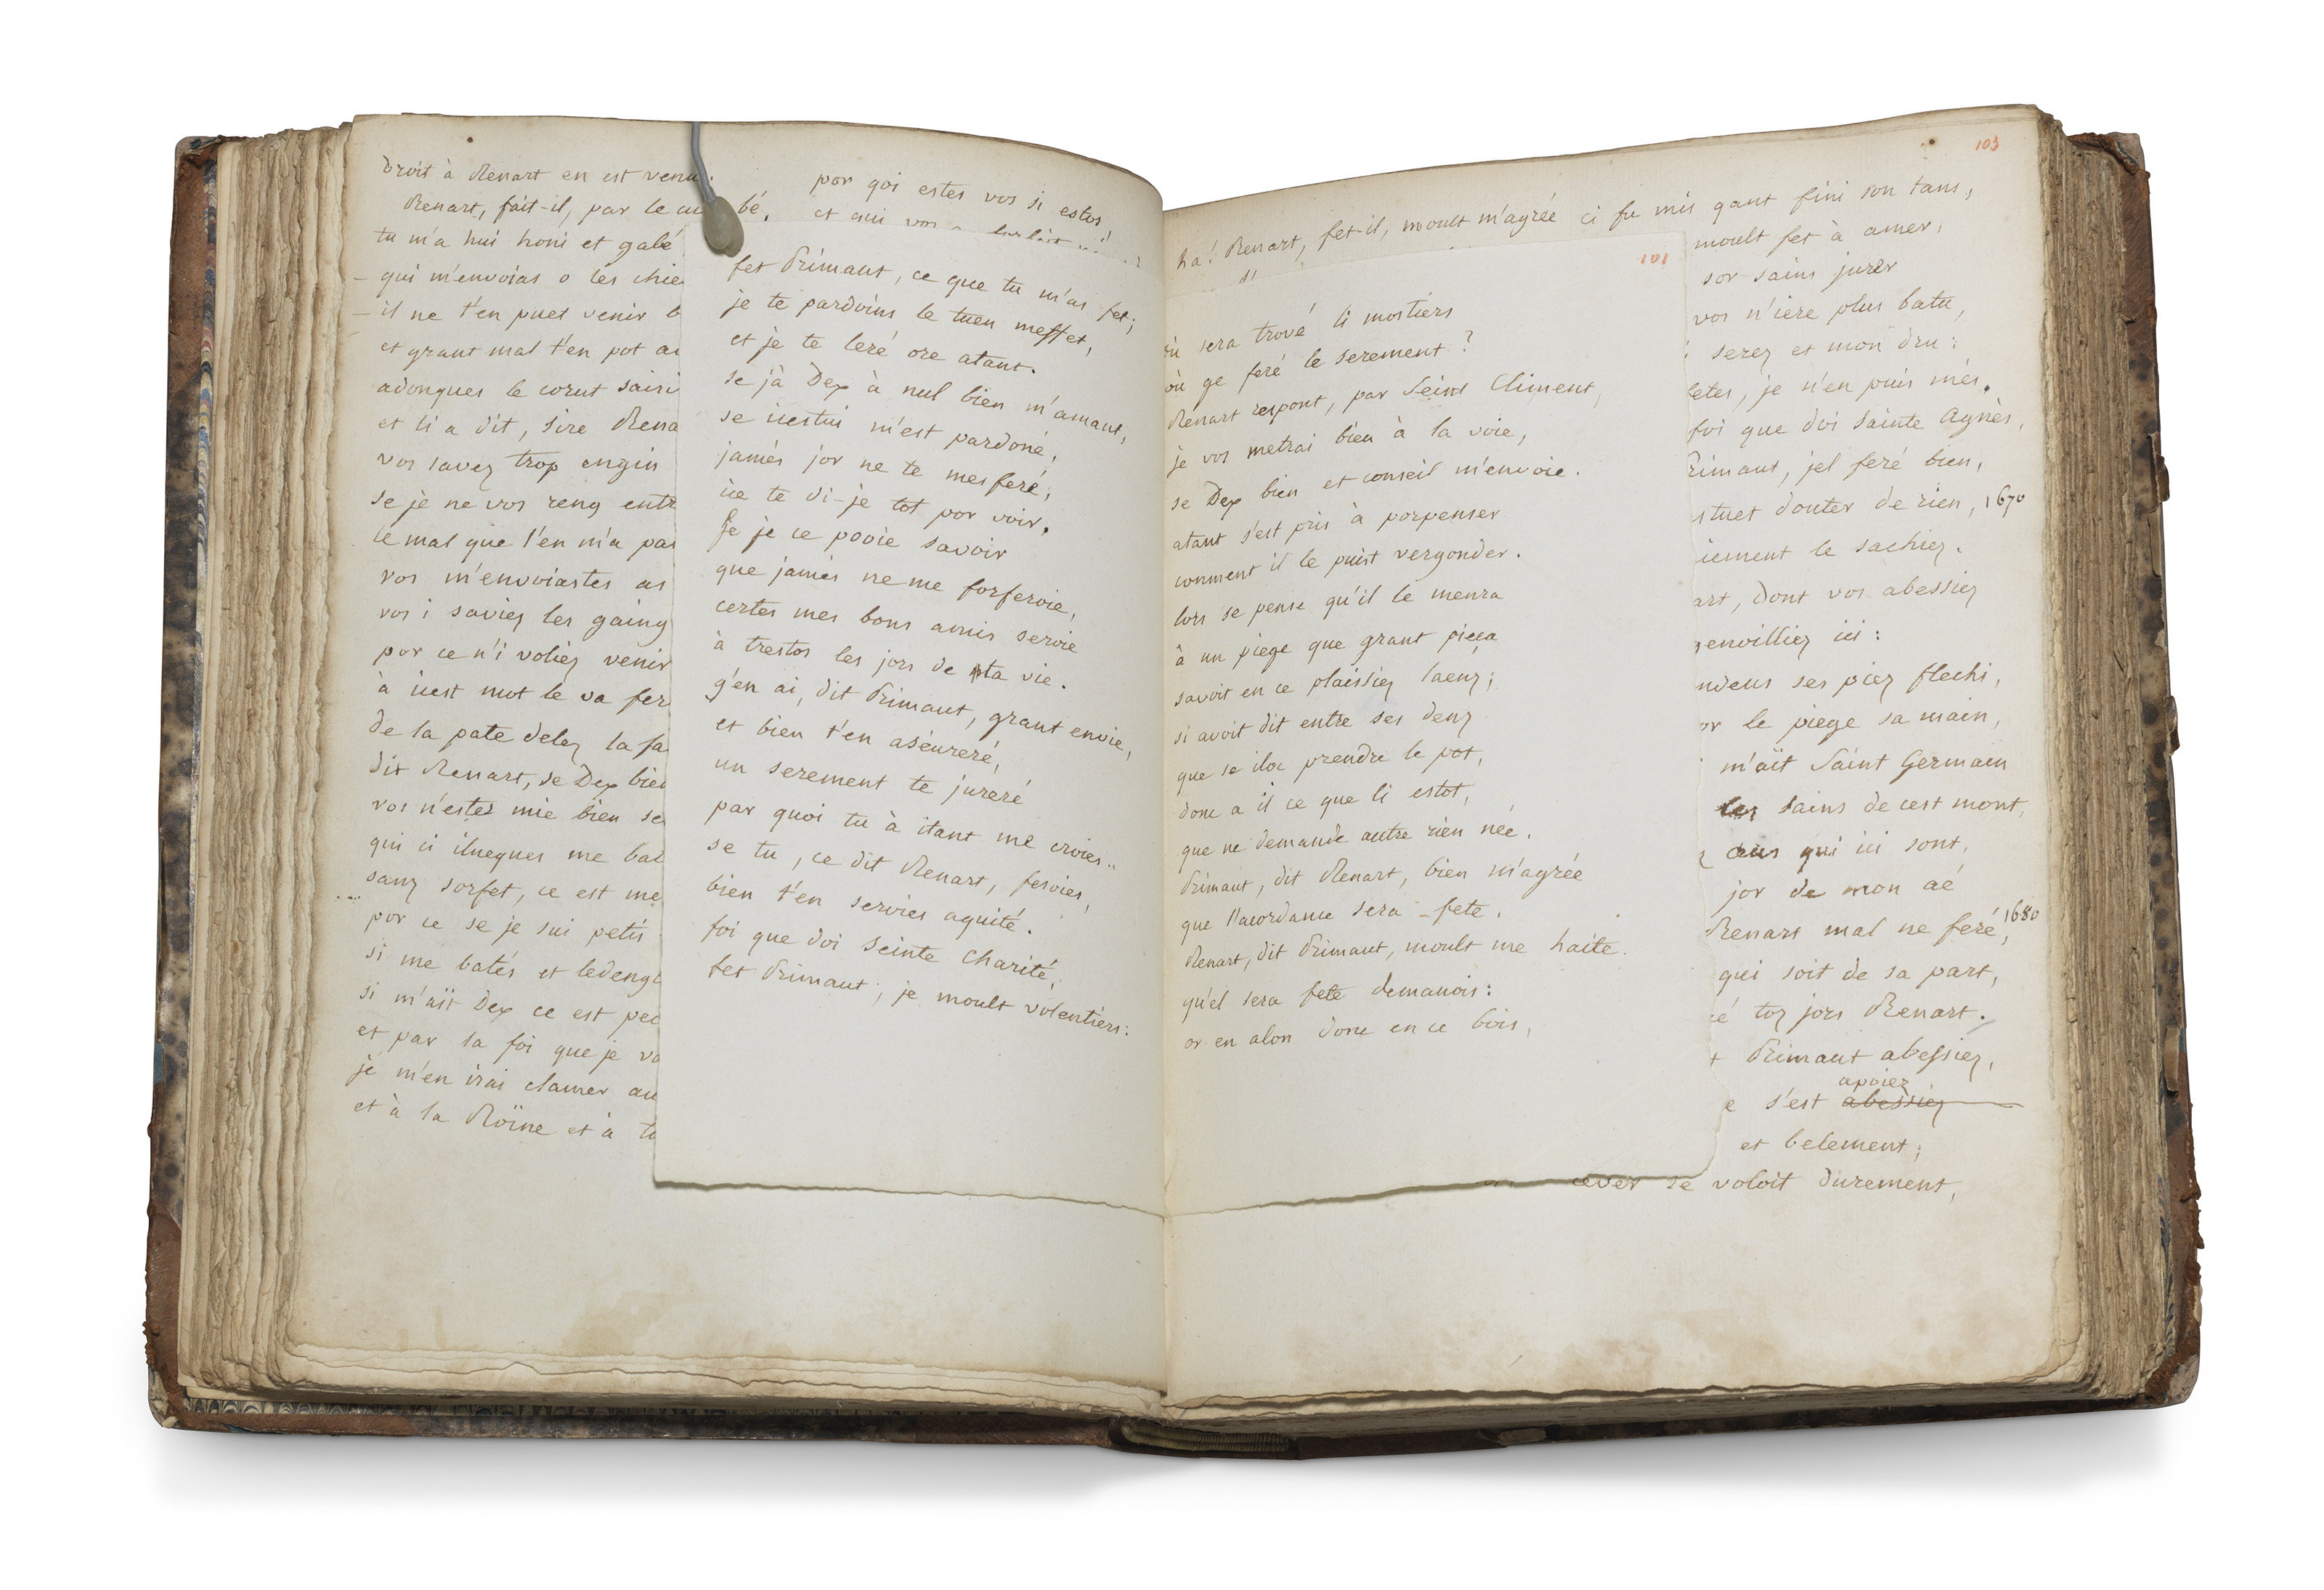 droit à Renart en est venu.
Renart, fait-il, par le cu bé,
tu m'a hui honi et gabé
qui m'envoias o les chie
il ne t'en puet venir b
et grant mal t'en pot a
adonques le corut saisi
et li a dit, sire Rena
vos savez trop engin
se je ne vos reng ent
le mal que l'en m'a pa
vos m'envoiastes as
vos i saviez les gaing
por ce n'i voliez venir
à icest mot le va fer
de la pate delez la fa
dit Renart, se Dex bie
vos n'estes mie bien se
qui ci ilueques me bat
sanz sorfet, ce est me
por ce se je sui petis
si me batés et ledenge
si m'aït Dex ce est pec
et par la foi que je vo
je m'en irai clamer au
et à la Roïne et à to
por qoi estes vos si estos!
et qui vos
fet Primaut, ce que tu m'as fet;
je te pardoins le tuen meffet,
et je te leré ore atant.
se jà Dex à nul bien m'amant,
se icestui m'est pardoné,
jamés jor ne te mesferé;
ice te di-je tot por voir.
se je ce pooie savoir
que jamés ne me forferoie,
certes mes bons amis seroie
à trestos les jors de ta vie.
g'en ai, dit Primaut, grant envie,
et bien t'en aséureré,
un serement te jureré
par quoi tu à itant me croies..
se tu, ce dit Renart, fesoies,
bien t'en seroies aquité.
foi que doi seinte Charité,
fet Primaut, je moult volentiers:
ha! Renart, fet-il, moult m'agrée
101
où sera trové li mostiers
où ge feré le serement?
Renart respont, par Seint Climent,
je vos metrai bien à la voie,
se Dex bien et conseil m'envoie.
atant s'est pris à porpenser
comment il le puist vergonder.
lors se pense qu'il le menra
à un piege que grant pieça
savoit en ce plaissiez laenz;
si avoit dit entre ses denz
que se iloc prendre le pot,
donc a il ce que li estot,
que ne demande autre rien née.
Primaut, dit Renart, bien m'agrée
que l'acordance sera fete.
Renart, dit Primaut, moult me haite.
qu'el sera fete demanois:
or en alon donc en ce bois,
103
ci fu mis qant fini son tans,
moult fet à amer,
sor sains jurer
vos n'iere plus batu,
serez et mon dru:
letes, je n'en puis més.
foi que doi Sainte Agnès,
rimaut, jel feré bien,
stuet douter de rien, 1670
iement le sachiez.
art, dont vos abessiez
genoilliez ici:
ndeus ses piez flechi,
or le piege sa main,
m'aït Saint Germain
les sains de cest mont,
z ceus qui ici sont,
jor de mon aé
Renart mal ne feré, 1680
qui soit de sa part,
é toz jors Renart.
t Primaut abessiez,
apoiez
e s'est abessiez
et belement;
cever se voloit durement,